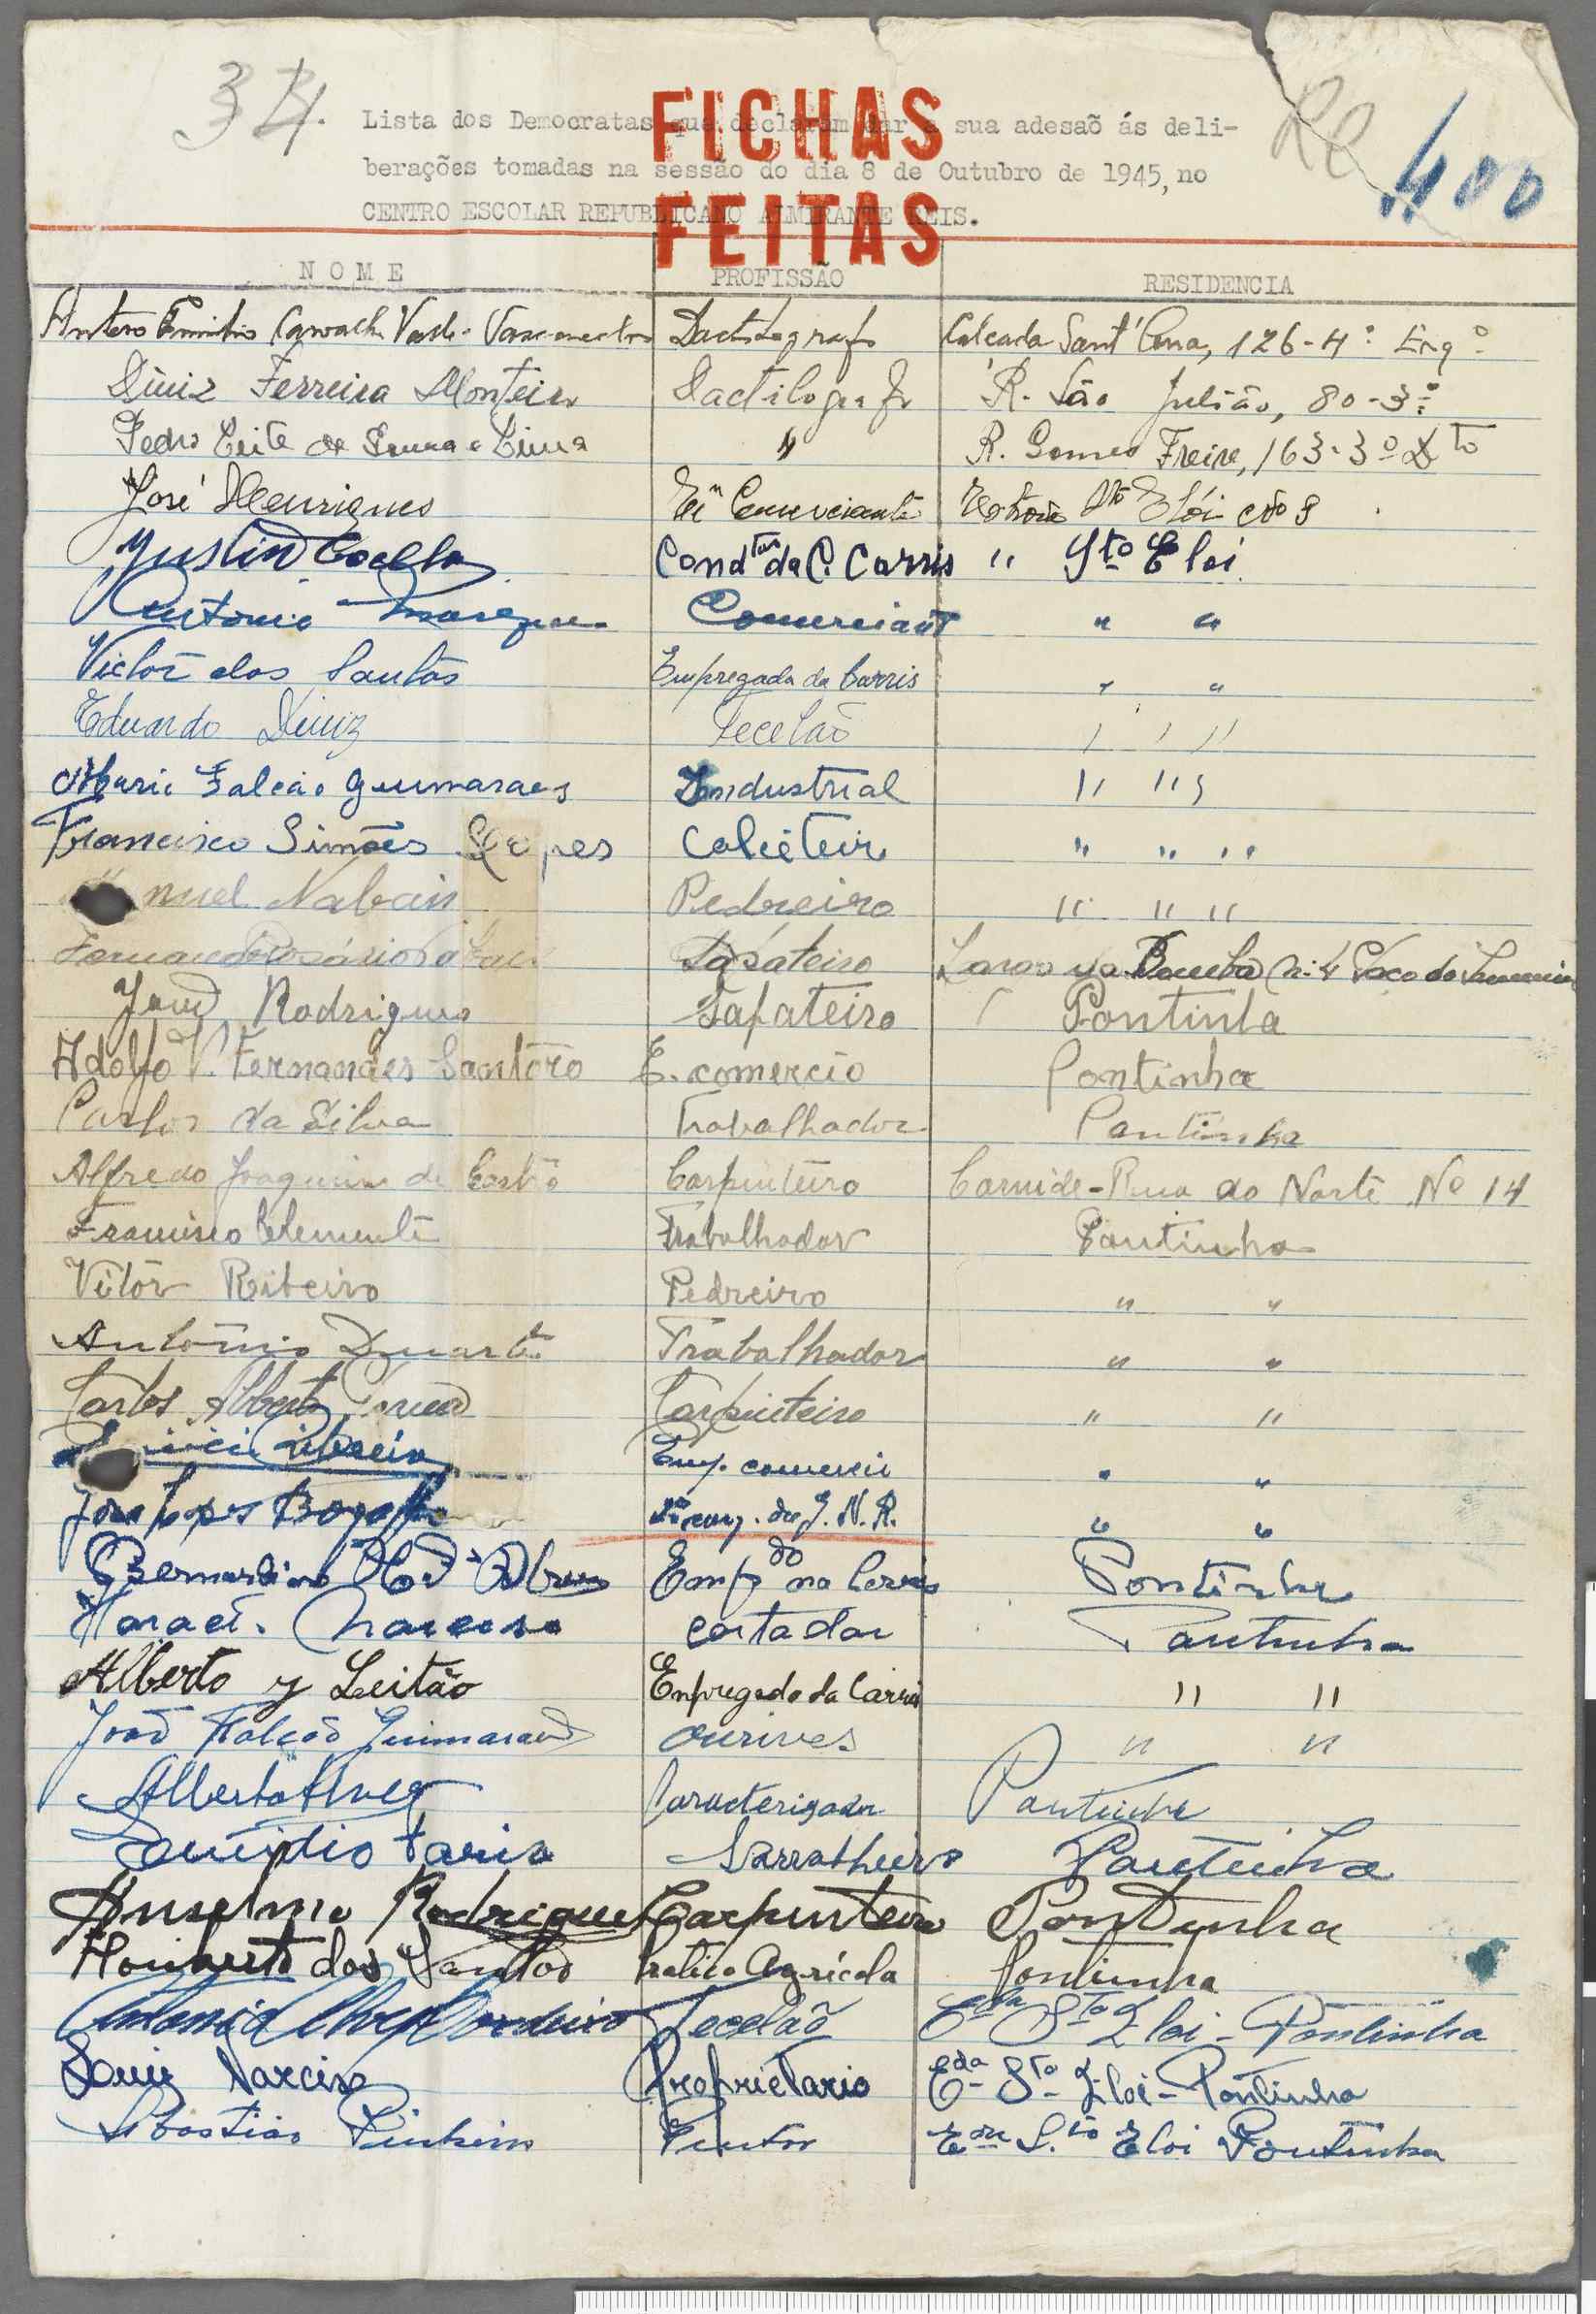 34.
FICHAS
FEITAS
400
Lista dos Democratas que declaram dar a sua adesaõ ás deli-
berações tomadas na sessão do dia 8 de Outubro de 1945, no
CENTRO ESCOLAR REPUBLICANO ALMIRANTE REIS.
NOME PROFISSÃO RESIDENCIA
Antero Carvalho Dactilografo Calçada Sant'Ana, 126-4º Esqº
Diniz Ferreira Monteiro Dactilografo R. São Julião, 80-3º
Pedro Leite de Sousa e Lima " R. Gomes Freire, 163-3º Dto
José Henriques Comerciante Stº Elói
Justino Coelho da C. Carris " Sto Eloi
Antonio Marques Comerciante " "
Victor dos Santos Empregado da Carris " "
Eduardo Diniz Tecelão
Mario Falcão Guimaraes Industrial
Francisco Simões Lopes Calceteiro " " "
nuel Nabais Pedreiro " " "
Fernando Rosário Sapateiro Largo da Bomba
Rodrigues Sapateiro Pontinha
Adolfo V. Fernandes Santôro E. comercio Pontinha
Carlos da Silva Trabalhador Pontinha
Alfredo Joaquim de Castro Carpinteiro Carnide-Rua do Norte Nº 14
Francisco Clemente Trabalhador Pontinha
Vitôr Ribeiro Pedreiro " "
António Duarte Trabalhador " "
Carlos Alberto Carpinteiro " "
Ribeiro Emp. comercio " "
José Lopes da G. N. R. " "
Bernardino Empdo na Carris Pontinha
Narciso Cortador Pontinha
Alberto Leitão Empregado da Carris " "
João Falcão Guimaraes Ourives " "
Alberto Alves Caracterizador Pontinha
Emídio Faria Serralheiro Pontinha
Anselmo Rodrigues Carpinteiro Pontinha
Humberto dos Santos Pratico Agricola Pontinha
Antonio Alves Cordeiro Tecelão Eda Sto Eloi - Pontinha
Luiz Narciso Proprietario Eda Sto Eloi - Pontinha
Sebastião Pinheiro Pintor S.to Eloi Pontinha